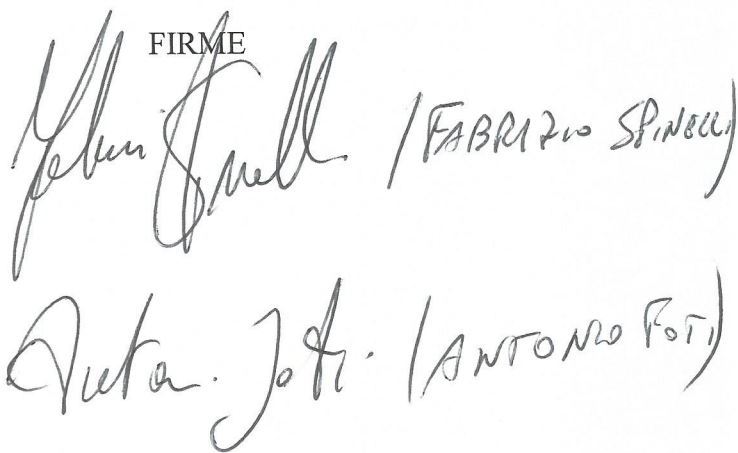 FIRME
Fabrizio Spinelli (FABRIZIO SPINELLI)
Anton. Foti. (ANTONIO FOTI)